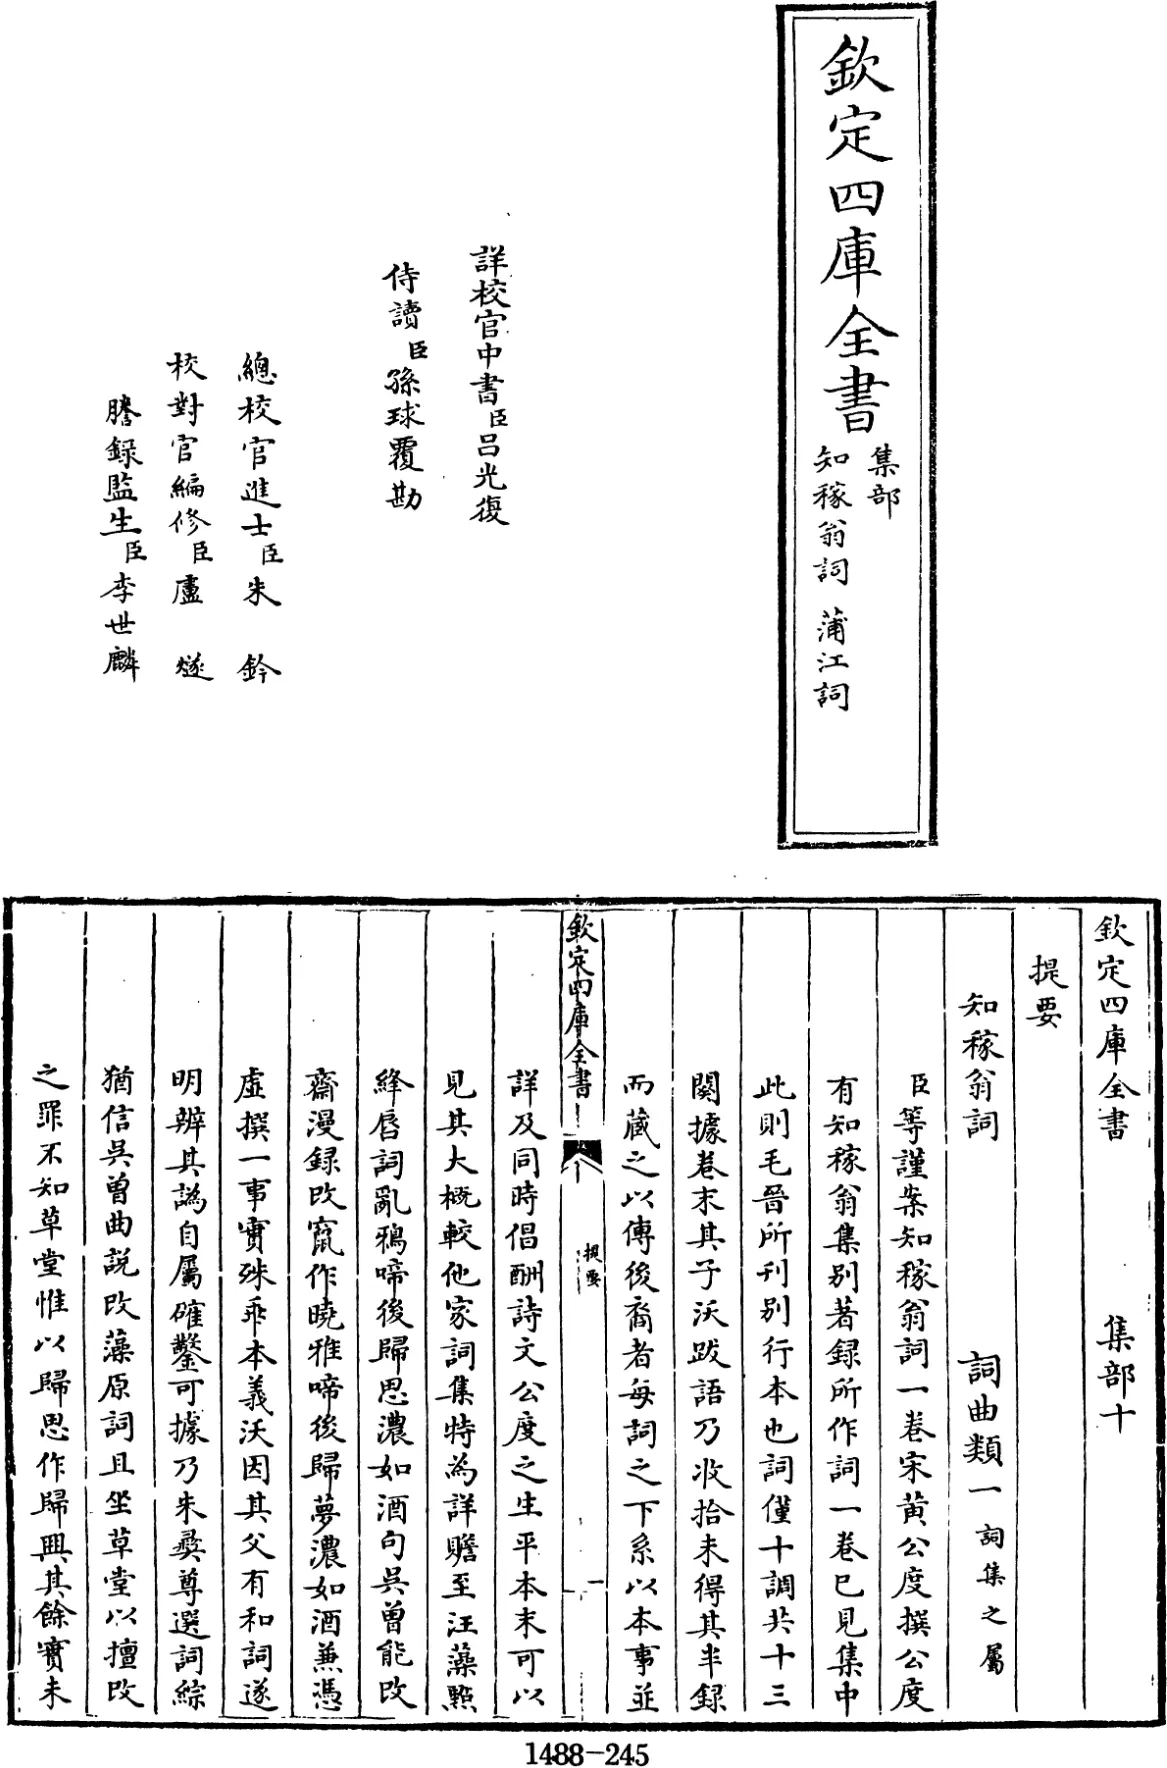 欽定四庫全書
集部
知稼翁詞 蒲江詞
詳校官中書臣呂光復
侍讀臣孫球覆勘
總校官進士臣朱鈐
校對官編修臣盧燧
謄錄監生臣李世麟
欽定四庫全書 集部十
提要
知稼翁詞 詞曲類一 詞集之屬
臣等謹案知稼翁詞一卷宋黃公度撰公度
有知稼翁集別著録所作詞一卷已見集中
此則毛晉所刊別行本也詞僅十調共十三
闋據卷末其子沃跋語乃收拾未得其半録
而藏之以傳後裔者每詞之下系以本事並
欽定四庫全書
提要
一
詳及同時倡酬詩文公度之生平本末可以
見其大概較他家詞集特為詳贍至汪藻點
絳唇詞亂鴉啼後歸思濃如酒句吳曾能改
齋漫録改竄作曉鴉啼後歸夢濃如酒兼憑
虛撰一事實殊乖本義沃因其父有和詞遂
明辨其譌自屬確鑿可據乃朱彝尊選詞綜
猶信吳曾曲說改藻原詞且坐草堂以擅改
之罪不知草堂惟以歸思作歸興其餘實未
1488-245